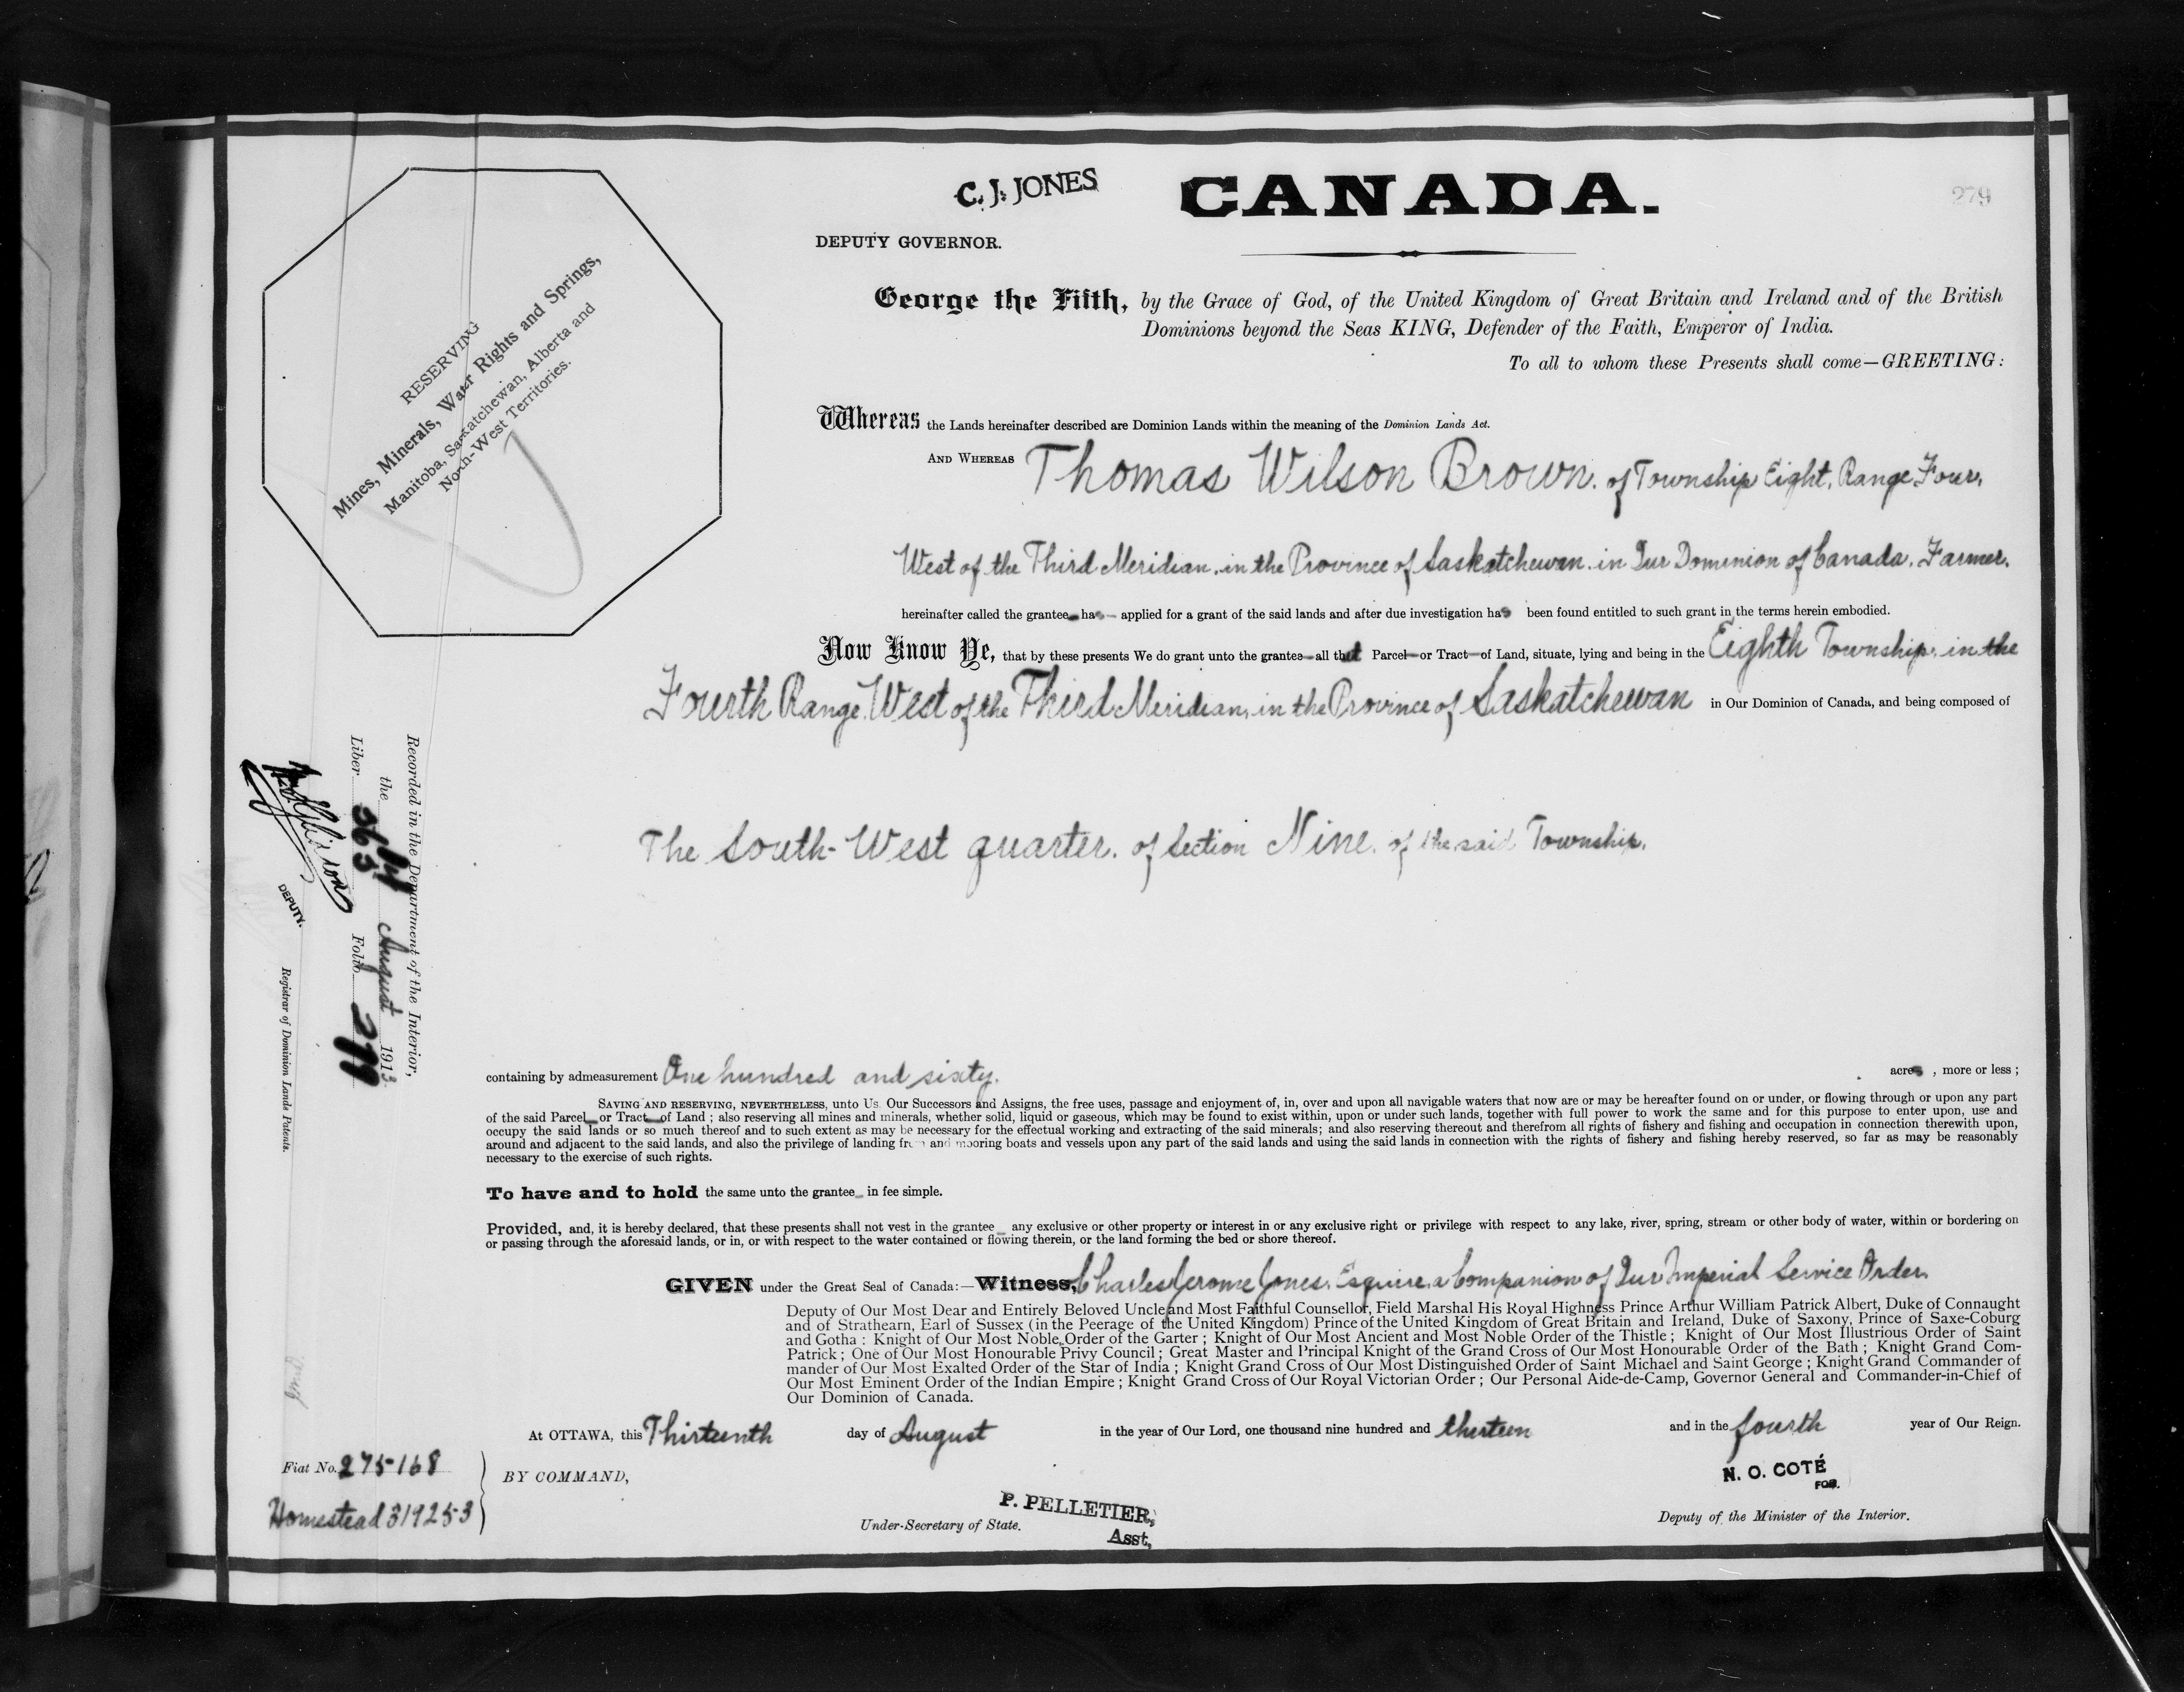 C. J. JONES
CANADA.
279
DEPUTY GOVERNOR.
George the Fifth, by the Grace of God, of the United Kingdom of Great Britain and Ireland and of the British
Dominions beyond the Seas KING, Defender of the Faith, Emperor of India.
To all to whom these Presents shall come—GREETING:
RESERVING
Mines, Minerals, Water Rights and Springs,
Manitoba, Saskatchewan, Alberta and
North-West Territories.
Whereas the Lands hereinafter described are Dominion Lands within the meaning of the Dominion Lands Act.
AND WHEREAS Thomas Wilson Brown. of Township Eight, Range Four,
West of the Third Meridian, in the Province of Saskatchewan. in Our Dominion of Canada. Farmer.
hereinafter called the grantee has applied for a grant of the said lands and after due investigation has been found entitled to such grant in the terms herein embodied.
Now Know Ye, that by these presents We do grant unto the grantee all that Parcel or Tract of Land, situate, lying and being in the Eighth Township, in the
Fourth Range, West of the Third Meridian, in the Province of Saskatchewan in Our Dominion of Canada, and being composed of
The South-West quarter. of Section Nine. of the said Township.
Recorded in the Department of the Interior,
the August 1913
Liber 563 Folio 279
DEPUTY.
Registrar of Dominion Lands Patents.
containing by admeasurement One hundred and sixty. acres , more or less ;
SAVING AND RESERVING, NEVERTHELESS, unto Us. Our Successors and Assigns, the free uses, passage and enjoyment of, in, over and upon all navigable waters that now are or may be hereafter found on or under, or flowing through or upon any part
of the said Parcel or Tract of Land ; also reserving all mines and minerals, whether solid, liquid or gaseous, which may be found to exist within, upon or under such lands, together with full power to work the same and for this purpose to enter upon, use and
occupy the said lands or so much thereof and to such extent as may be necessary for the effectual working and extracting of the said minerals; and also reserving thereout and therefrom all rights of fishery and fishing and occupation in connection therewith upon,
around and adjacent to the said lands, and also the privilege of landing from and mooring boats and vessels upon any part of the said lands and using the said lands in connection with the rights of fishery and fishing hereby reserved, so far as may be reasonably
necessary to the exercise of such rights.
To have and to hold the same unto the grantee in fee simple.
Provided, and, it is hereby declared, that these presents shall not vest in the grantee any exclusive or other property or interest in or any exclusive right or privilege with respect to any lake, river, spring, stream or other body of water, within or bordering on
or passing through the aforesaid lands, or in, or with respect to the water contained or flowing therein, or the land forming the bed or shore thereof.
GIVEN under the Great Seal of Canada:—Witness, Charles Jerome Jones, Esquire, a Companion of Our Imperial Service Order.
Deputy of Our Most Dear and Entirely Beloved Uncle and Most Faithful Counsellor, Field Marshal His Royal Highness Prince Arthur William Patrick Albert, Duke of Connaught
and of Strathearn, Earl of Sussex (in the Peerage of the United Kingdom) Prince of the United Kingdom of Great Britain and Ireland, Duke of Saxony, Prince of Saxe-Coburg
and Gotha : Knight of Our Most Noble Order of the Garter ; Knight of Our Most Ancient and Most Noble Order of the Thistle ; Knight of Our Most Illustrious Order of Saint
Patrick ; One of Our Most Honourable Privy Council ; Great Master and Principal Knight of the Grand Cross of Our Most Honourable Order of the Bath ; Knight Grand Com-
mander of Our Most Exalted Order of the Star of India ; Knight Grand Cross of Our Most Distinguished Order of Saint Michael and Saint George ; Knight Grand Commander of
Our Most Eminent Order of the Indian Empire ; Knight Grand Cross of Our Royal Victorian Order ; Our Personal Aide-de-Camp, Governor General and Commander-in-Chief of
Our Dominion of Canada.
At OTTAWA, this Thirteenth day of August in the year of Our Lord, one thousand nine hundred and thirteen and in the fourth year of Our Reign.
Fiat No. 275168
Homestead 319253
BY COMMAND,
N. O. COTÉ
FOR.
P. PELLETIER,
Asst,
Under-Secretary of State.
Deputy of the Minister of the Interior.